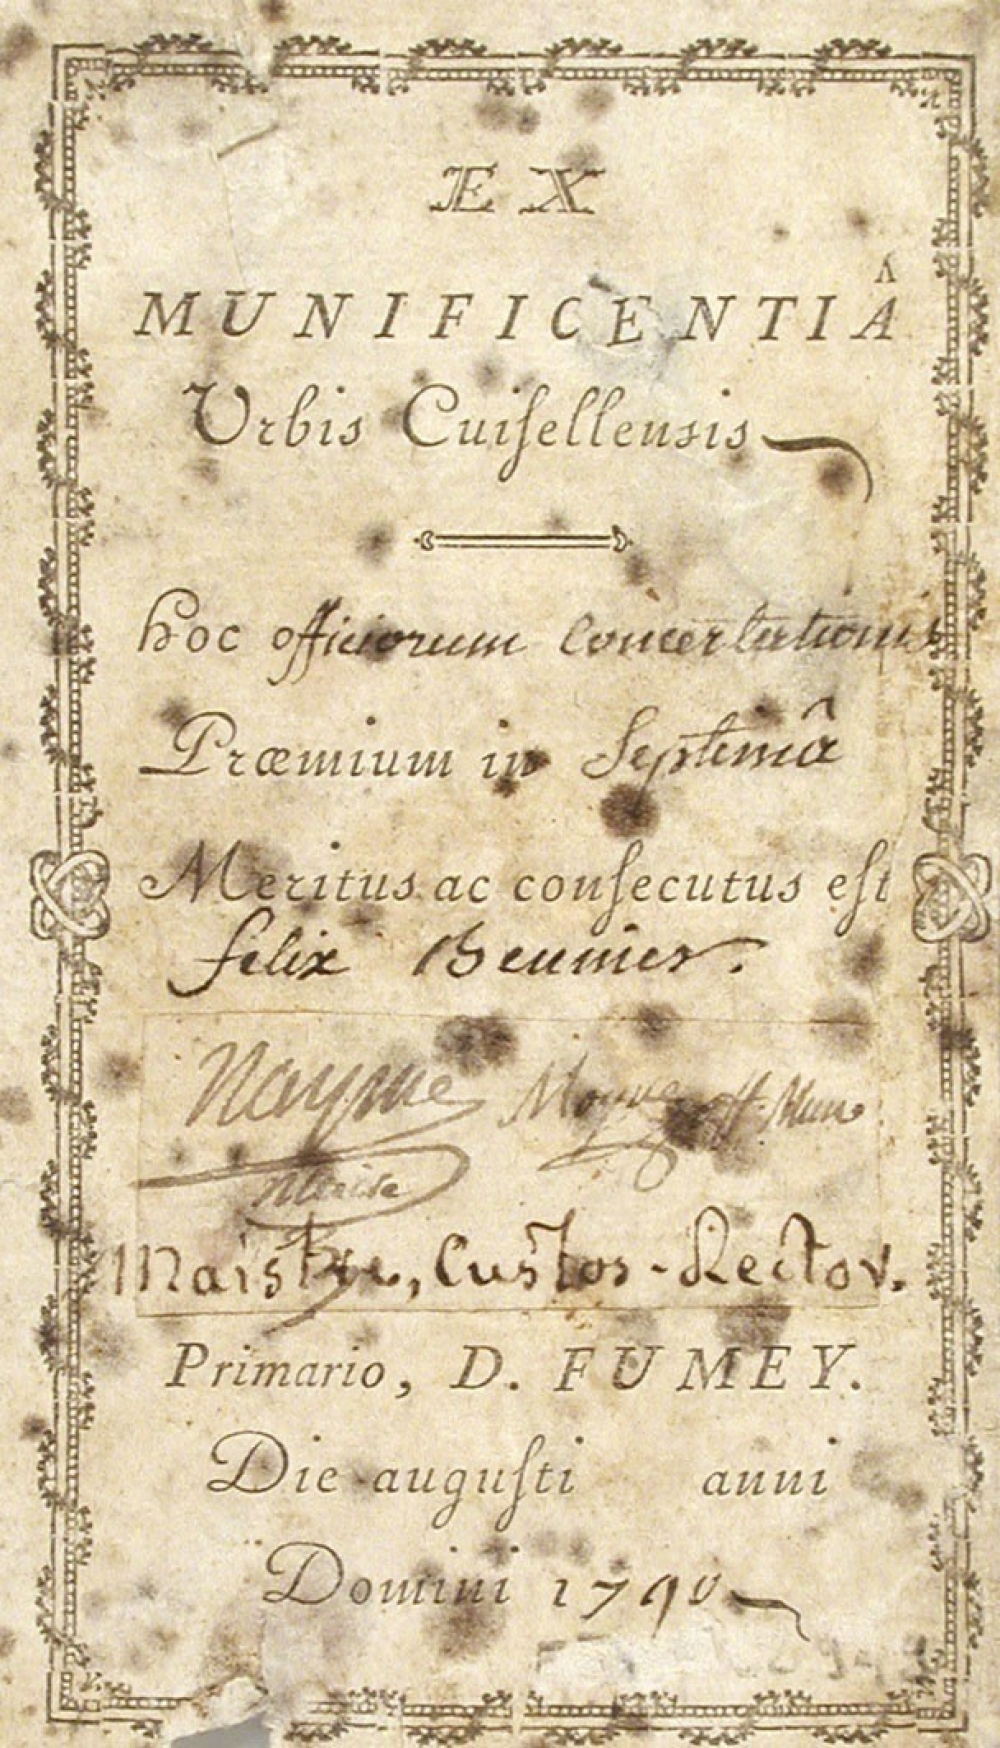 EX
MUNIFICENTIÂ
Urbis Cuiſellensis
hoc officiorum Concertationis
Præmium in Septimâ
Meritus ac conſecutus eſt
felix Beunier.
Nayme Moyne off. Mun
Maire
Maistre, Custos-Rector.
Primario, D. FUMEY.
Die auguſti anni
Domini 1790